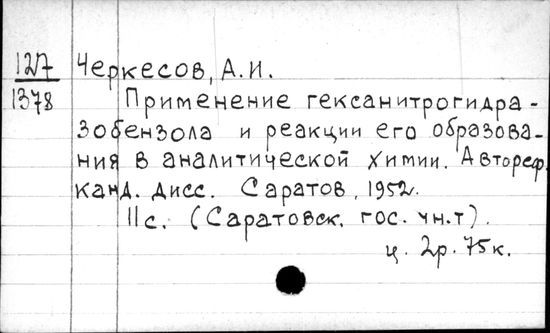 127 Черкесов, А.И.
1378 Применение гексанитрогидра-
зобензола и реакции его образова-
ния в аналитической химии. Автореф.
канд. дисс. Саратов, 1952.
11с. (Саратовск. гос. ун.т).
ц. 2р. 75к.